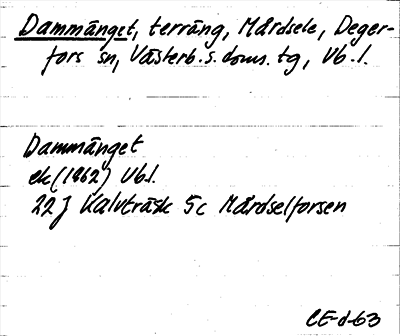 Dammänget, terräng, Mårdsele, Deger-
fors sn, Västerb. s. doms. tg, Vb. l.
Dammänget
ek (1962) Vb.l.
22J Kalvträsk 5c Mårdselforsen
CE-d-63